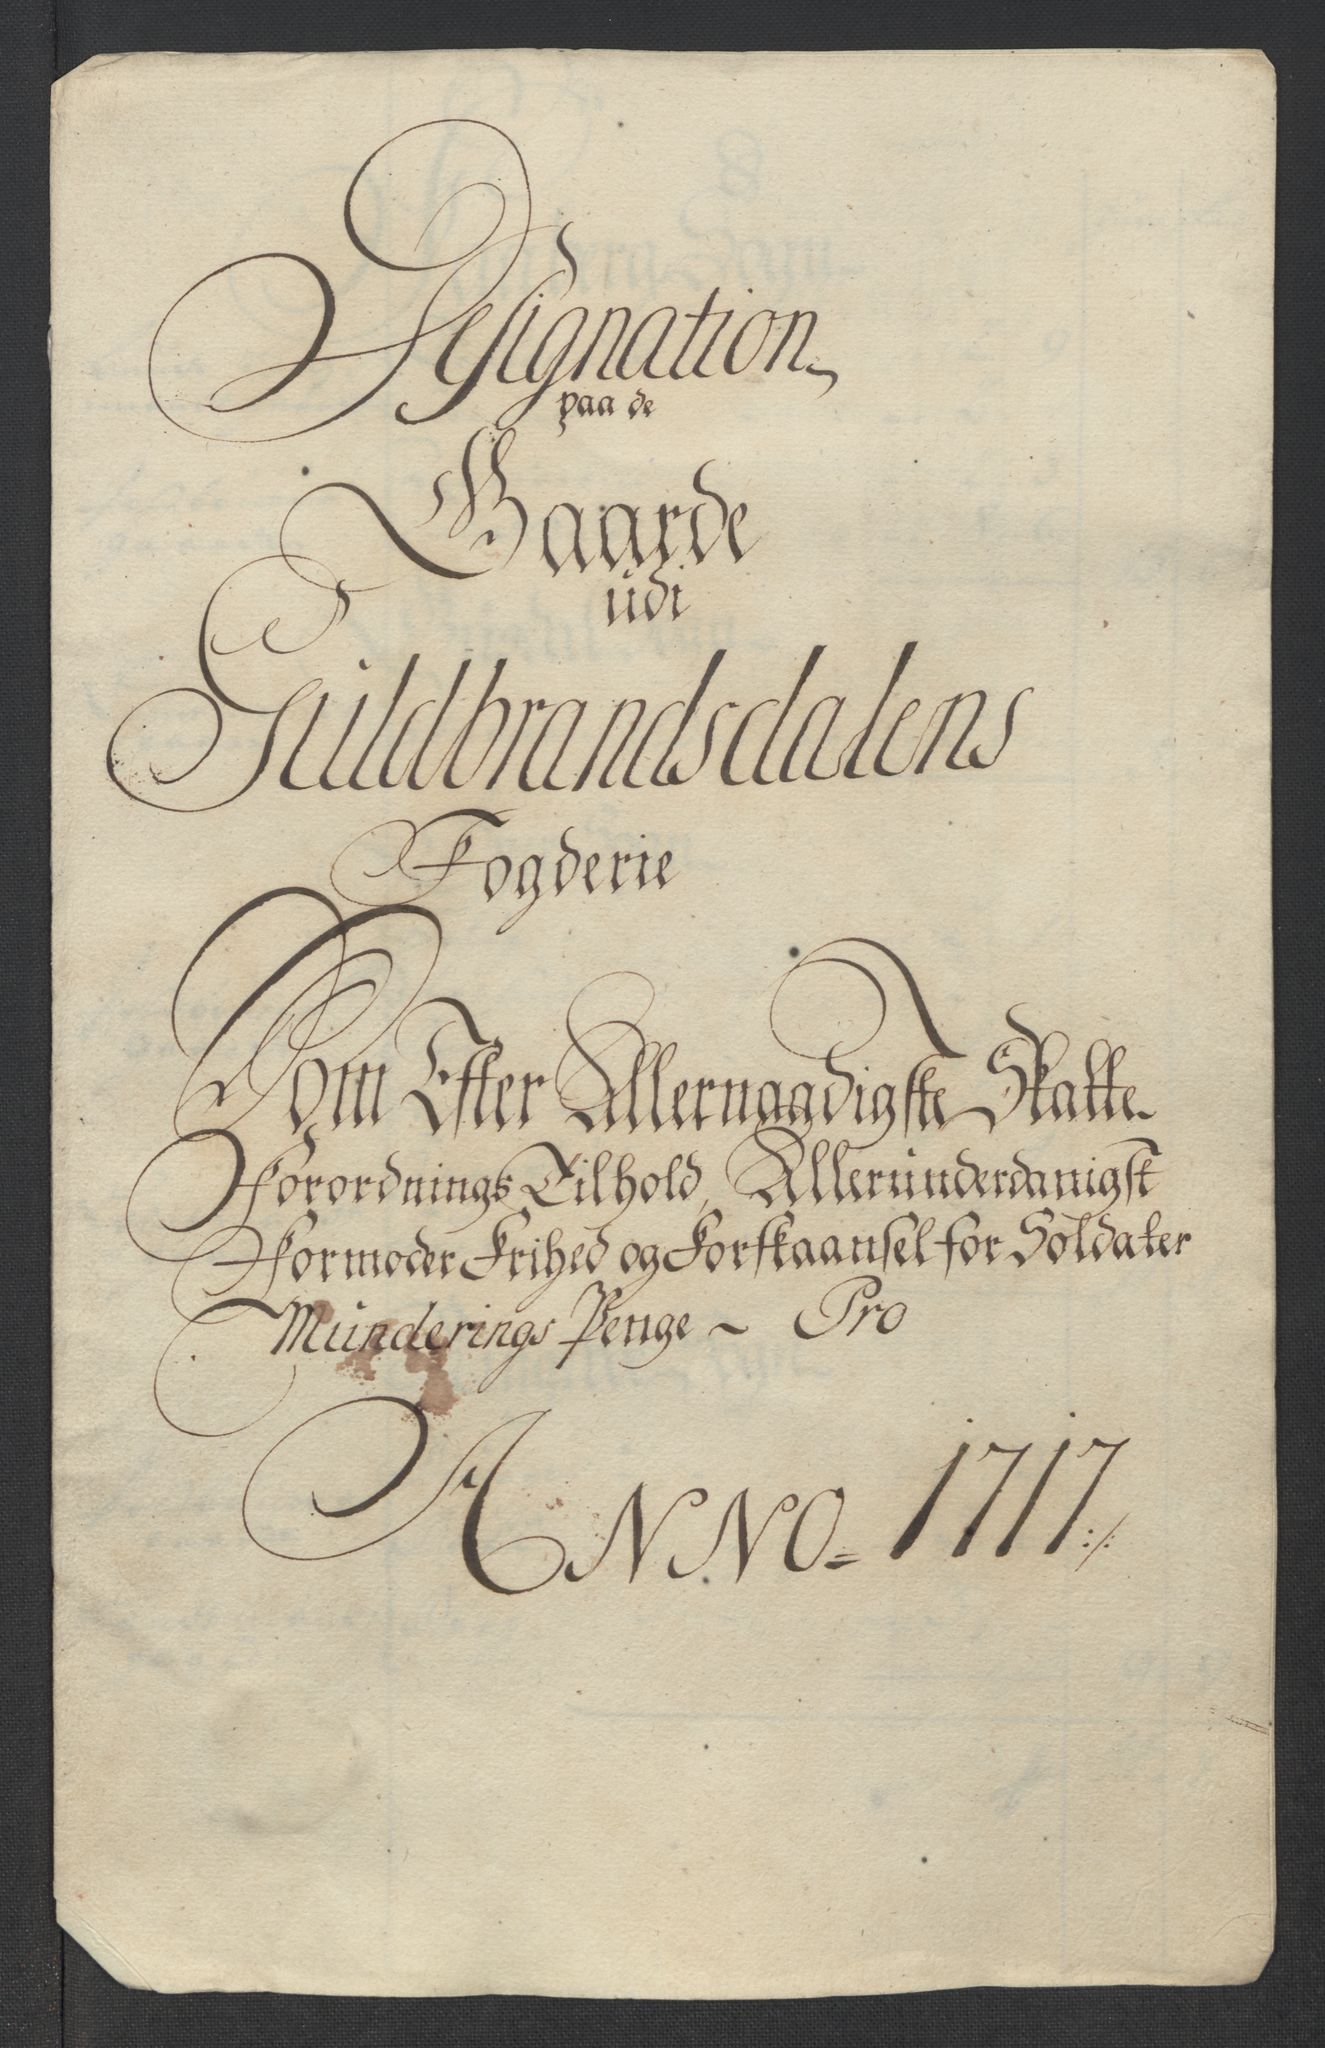 Designation
paa de
Gaarde
udi
Guldbrandsdalens
Fogderie
Som Efter Allernaadigste Skatte
Forordnings Tilhold, Allerunderdanigst
Formoder Frihed og Forskaansel for Soldater
Munderings Penge ~ Pro
ANNO = 1717 :/: